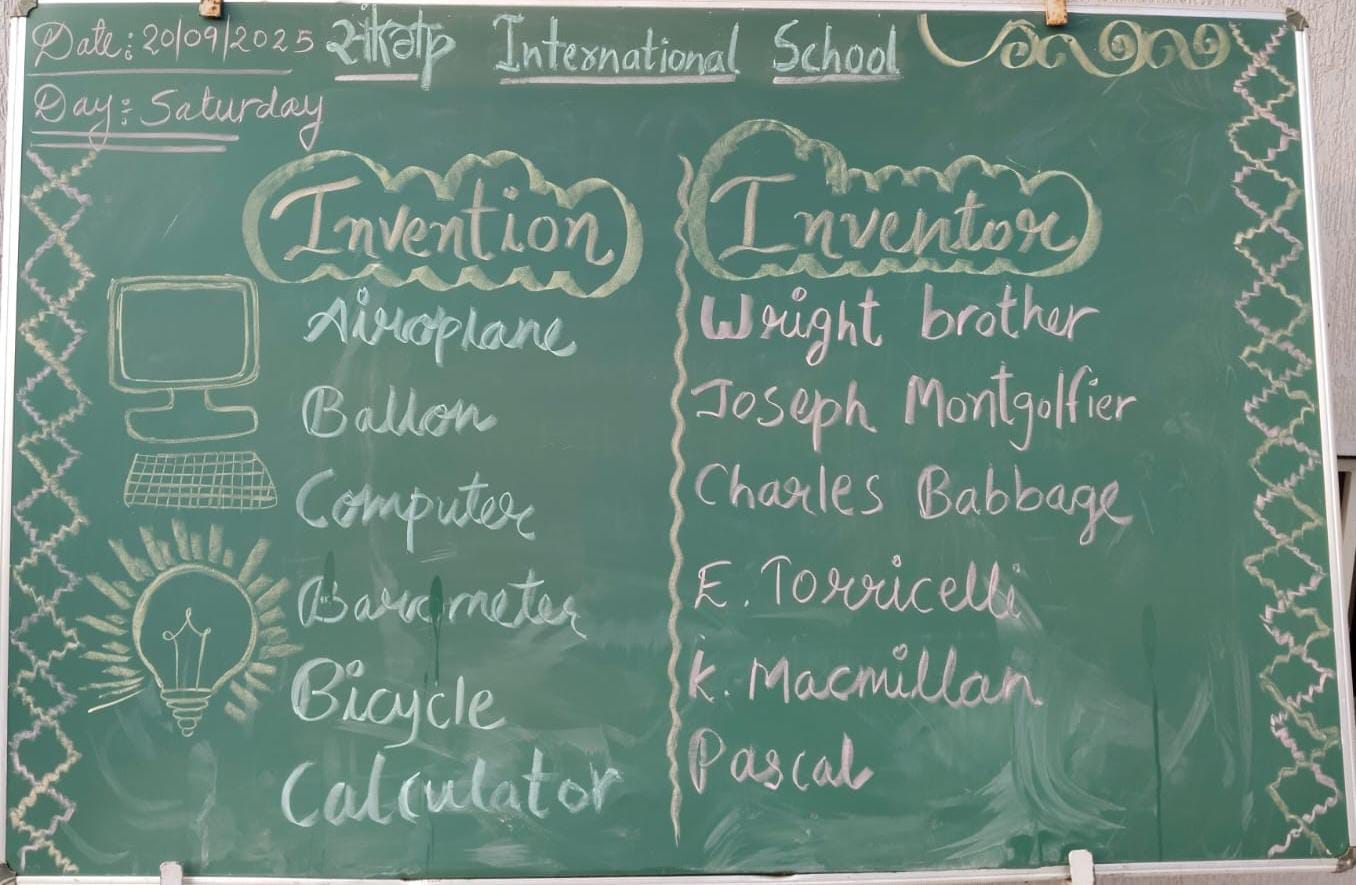 Date: 20/09/2025 संकल्प International School
Day: Saturday
Invention Inventor
Airoplane Wright brother
Ballon Joseph Montgolfier
Computer Charles Babbage
Barometer E. Torricelli
Bicycle K. Macmillan
Calculator Pascal